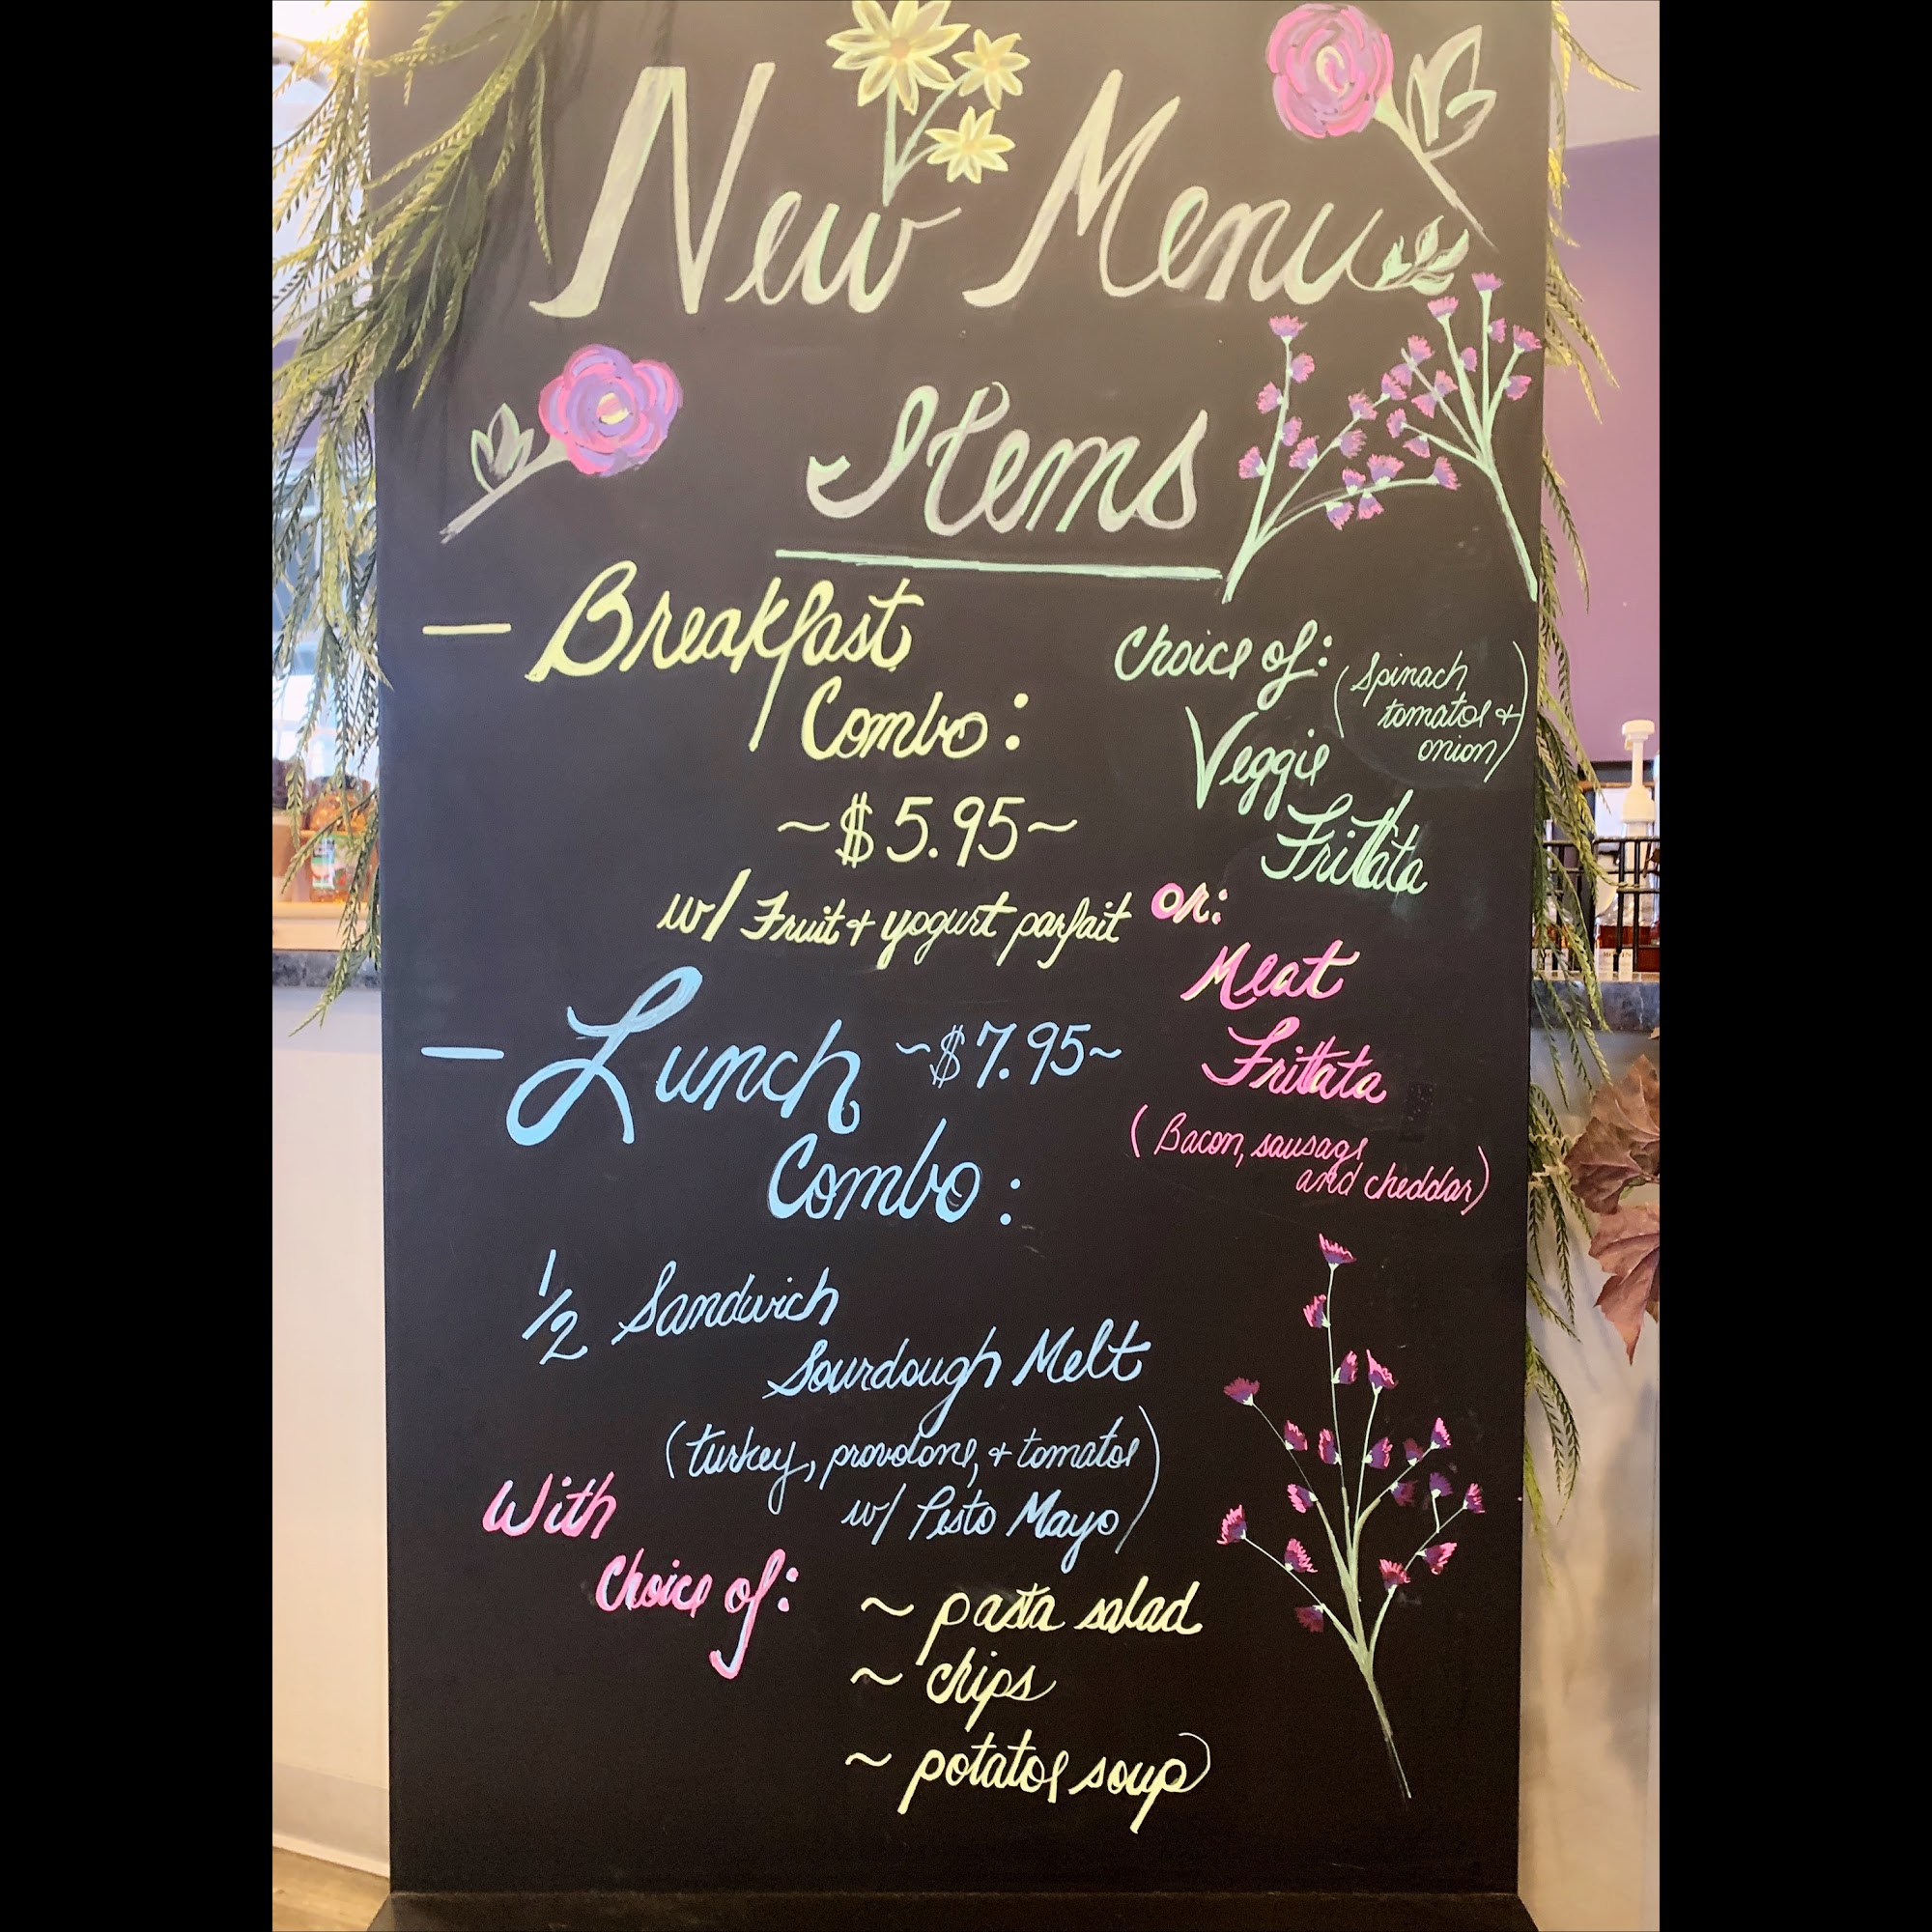 New Menu
Items
— Breakfast
Combo:
~$5.95~
w/ Fruit + yogurt parfait
Choice of:
(Spinach,
tomatoe +
onion)
Veggie
Frittata
or:
Meat
Frittata
(Bacon, sausage
and cheddar)
— Lunch ~$7.95~
Combo:
1/2 Sandwich
Sourdough Melt
(turkey, provolone, + tomatoe
w/ Pesto Mayo)
With
Choice of:
~ pasta salad
~ chips
~ potatoe soup